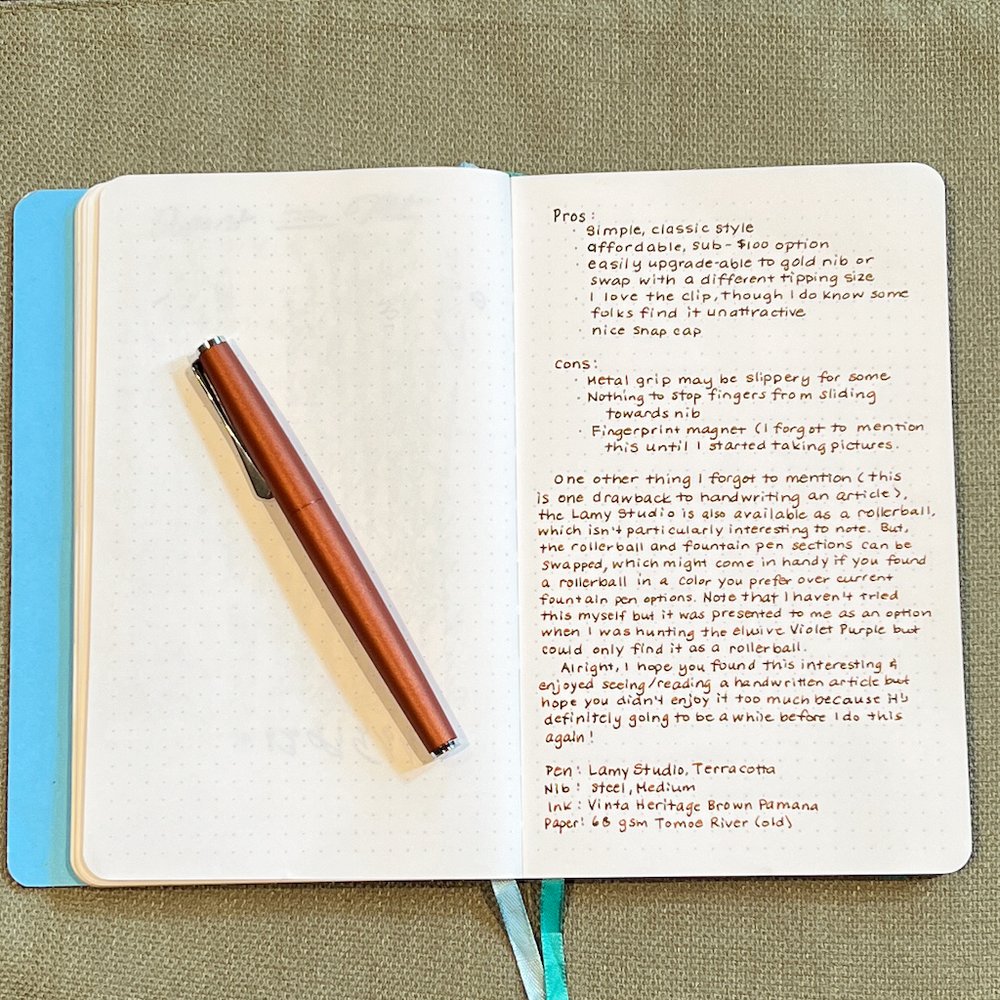 Pros:
· Simple, classic style
· affordable, sub-$100 option
· easily upgrade-able to gold nib or
swap with a different tipping size
· I love the clip, though I do know some
folks find it unattractive
· nice snap cap
Cons:
· Metal grip may be slippery for some
· Nothing to stop fingers from sliding
towards nib
· Fingerprint magnet (I forgot to mention
this until I started taking pictures.
One other thing I forgot to mention (this
is one drawback to handwriting an article),
the Lamy Studio is also available as a rollerball,
which isn't particularly interesting to note. But,
the rollerball and fountain pen sections can be
swapped, which might come in handy if you found
a rollerball in a color you prefer over current
fountain pen options. Note that I haven't tried
this myself but it was presented to me as an option
when I was hunting the elusive Violet Purple but
could only find it as a rollerball.
Alright, I hope you found this interesting &
enjoyed seeing/reading a handwritten article but
hope you didn't enjoy it too much because it's
definitely going to be a while before I do this
again!
Pen: Lamy Studio, Terracotta
Nib: Steel, Medium
Ink: Vinta Heritage Brown Pamana
Paper: 68 gsm Tomoe River (old)